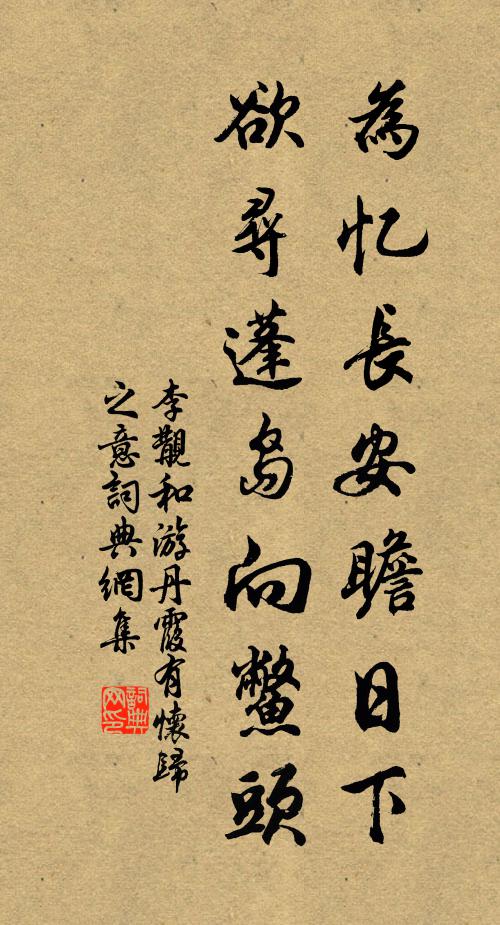 為忆長安瞻日下
欲尋蓬岛向鱉頭
李觀和游丹霞有懷歸
之意詞典網集
詞典
网印